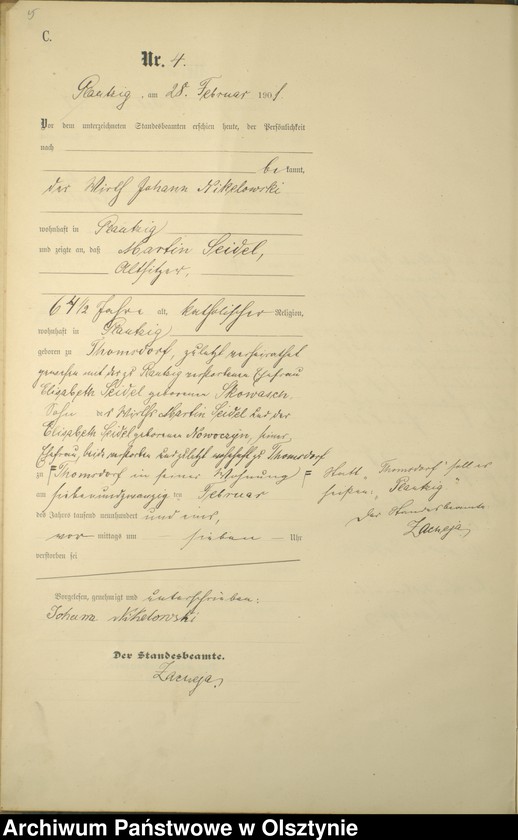 C.
Nr. 4.
Plautzig, am 28. Februar 1901.
Vor dem unterzeichneten Standesbeamten erschien heute, der Persönlichkeit
nach
be kannt,
der Wirth Johann Nikelowski
wohnhaft in Plautzig
und zeigte an, daß Martin Seidel,
Altsitzer,
64 1/2 Jahre alt, katholischer Religion,
wohnhaft in Plautzig
geboren zu Thomsdorf, zuletzt verheirathet
gewesen mit der zu Plautzig verstorbenen Ehefrau
Elisabeth Seidel geborenen Skowasch,
Sohn des Wirths Martin Seidel und der
Elisabeth Seidel geborenen Nowoczyn, seiner
Ehefrau, beide verstorben und zuletzt wohnhaft zu Thomsdorf
zu Thomsdorf in seiner Wohnung
am siebenundzwanzig ten Februar
des Jahres tausend neunhundert und eins,
vor mittags um sieben Uhr
verstorben sei
Statt „Thomsdorf" soll es
heißen „Plautzig"
Der Standesbeamte
Zacheja
Vorgelesen, genehmigt und unterschrieben:
Johann Nikelowski
Der Standesbeamte.
Zacheja
Archiwum Państwowe w Olsztynie